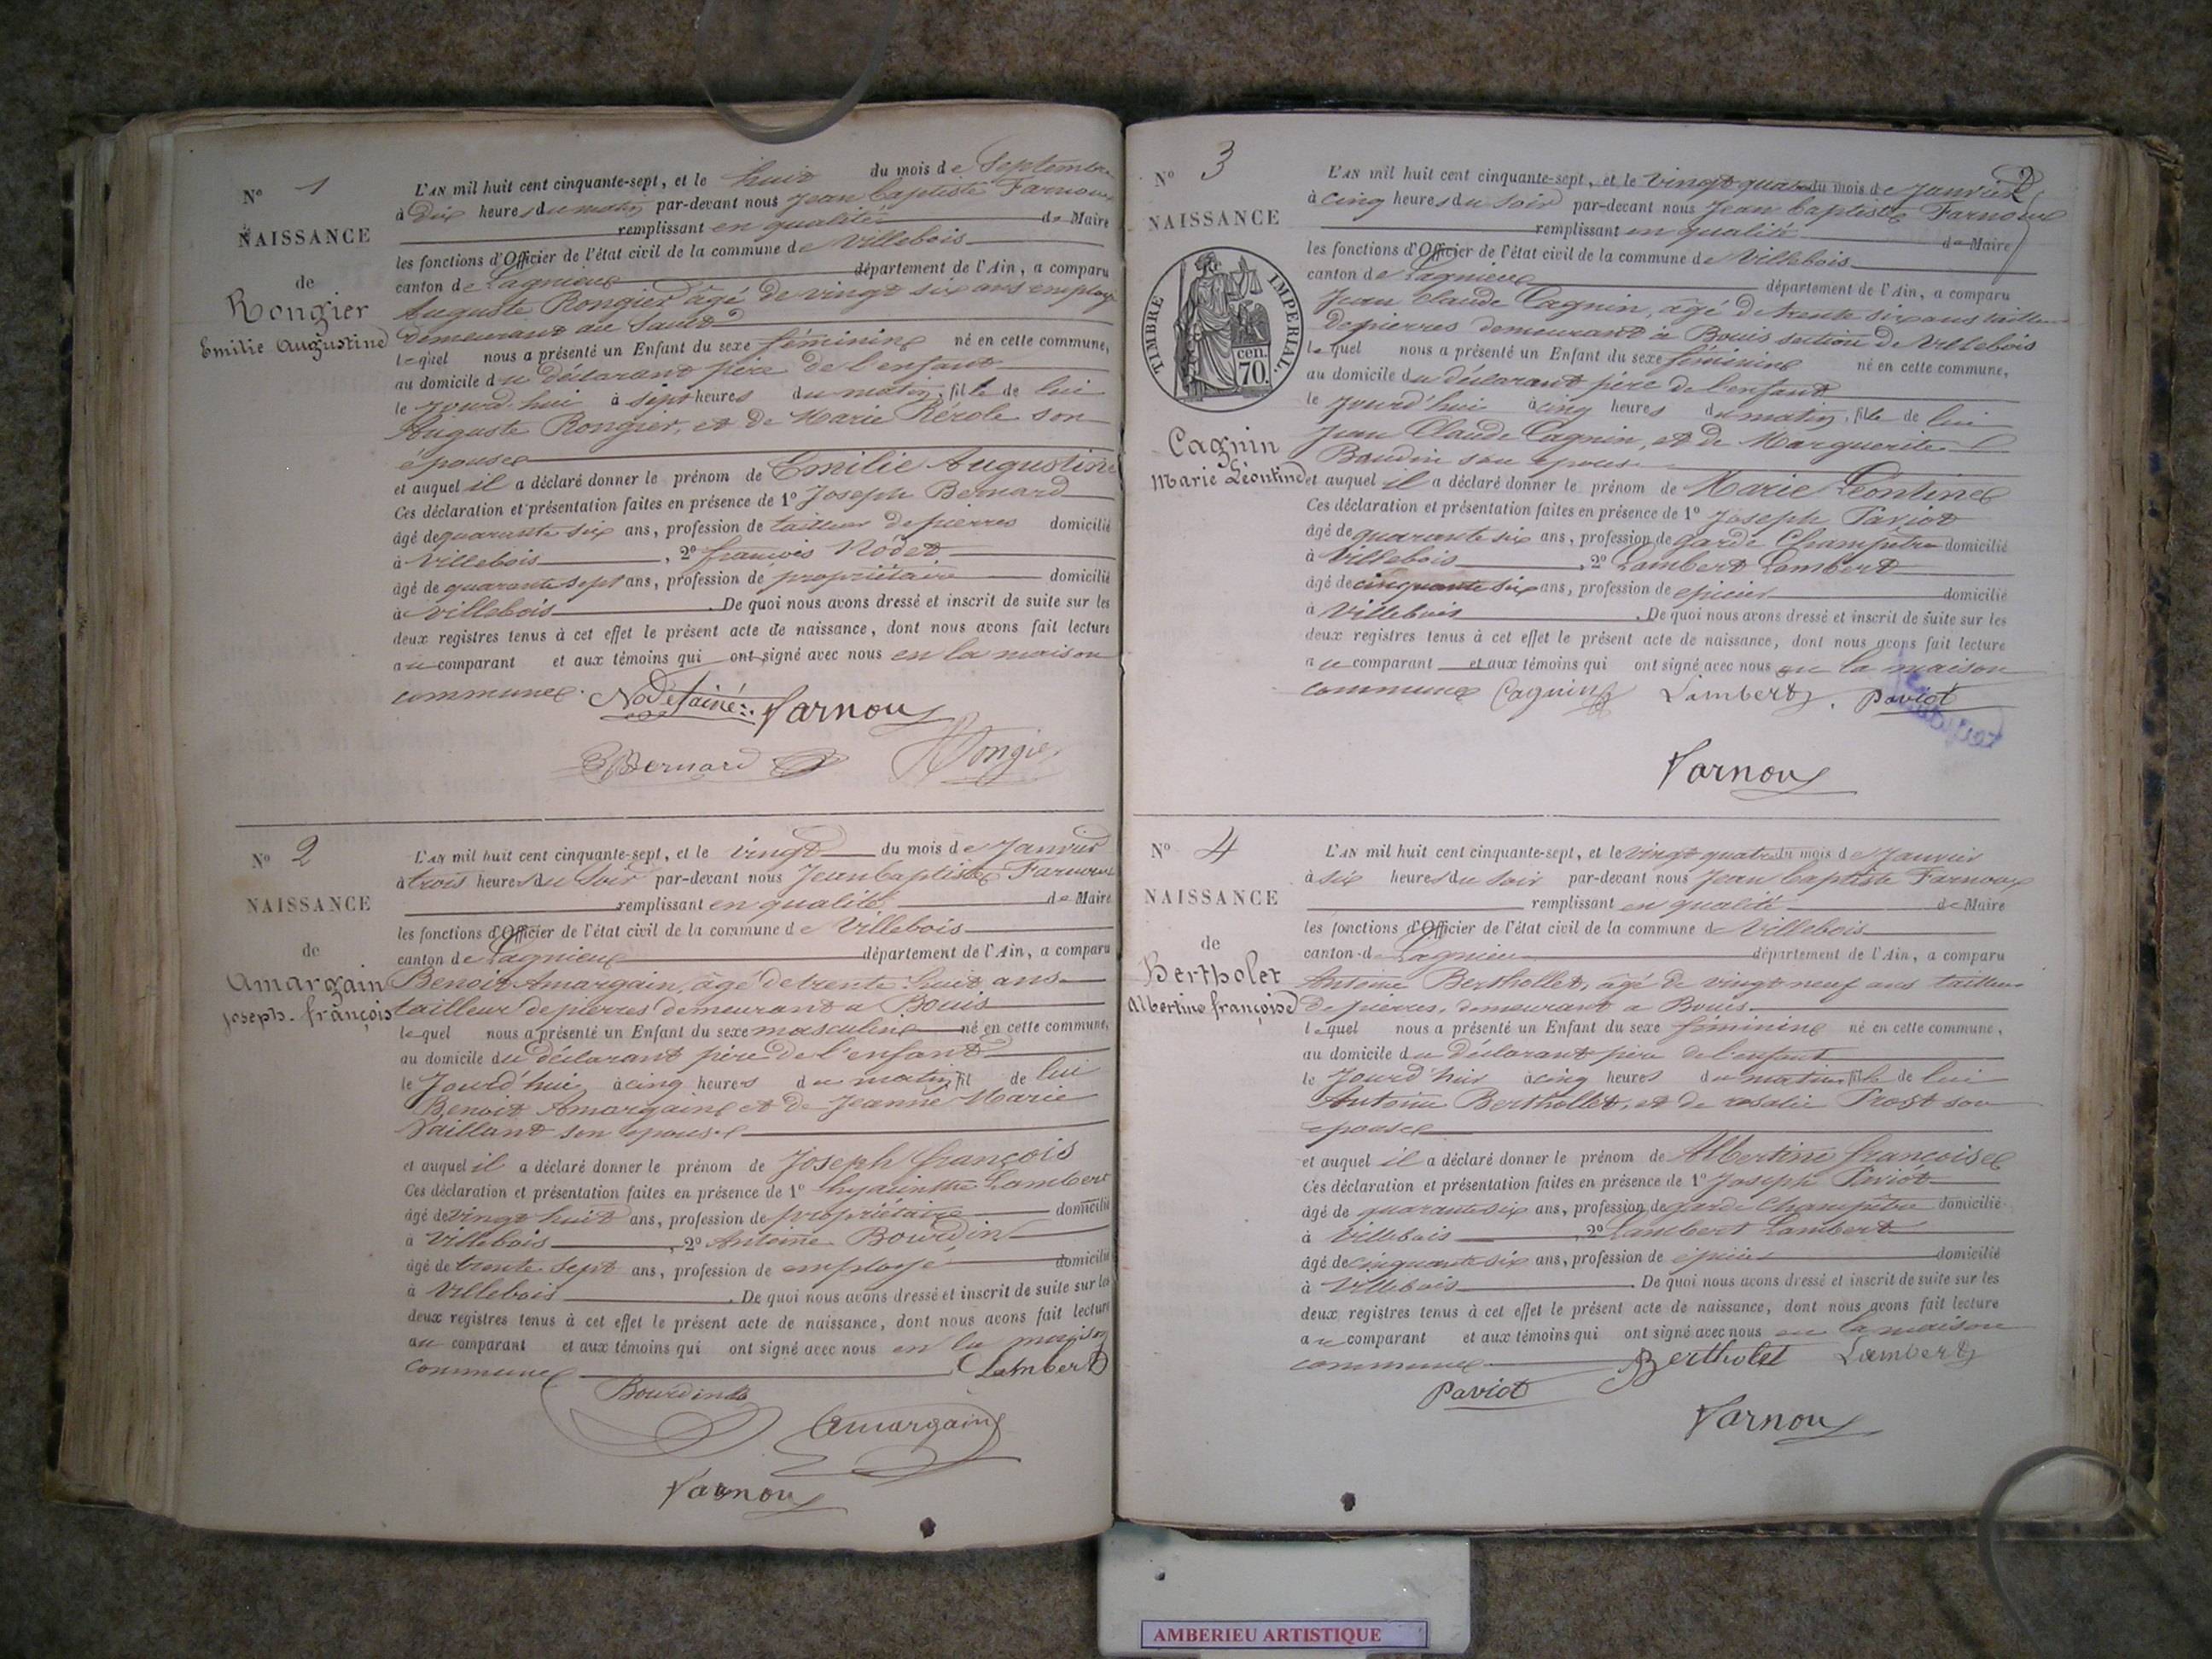 N° 1
NAISSANCE
de
Rongier
Emilie Augustine
L'AN mil huit cent cinquante-sept, et le huit du mois de Septembre
à Dix heures du matin par-devant nous Jean Baptiste Farnoux
remplissant en qualité de Maire
les fonctions d'Officier de l'état civil de la commune de Villebois
canton de Lagnieux département de l'Ain, a comparu
Auguste Rongier âgé de vingt six ans employé
demeurant au Sault
lequel nous a présenté un Enfant du sexe féminine né en cette commune,
au domicile du déclarant père de l'enfant
le jourd'hui à sept heures du matin, fille de lui
Auguste Rongier, et de Marie Rérole son
épouse
et auquel il a déclaré donner le prénom de Emilie Augustine
Ces déclaration et présentation faites en présence de 1° Joseph Bernard
âgé de quarante six ans, profession de tailleur de pierres domicilié
à Villebois, 2° françois Nodet
âgé de quarante sept ans, profession de propriétaire domicilié
à Villebois. De quoi nous avons dressé et inscrit de suite sur les
deux registres tenus à cet effet le présent acte de naissance, dont nous avons fait lecture
au comparant et aux témoins qui ont signé avec nous en la maison
commune. Nodet ainé Farnoux
Bernard Rongier
N° 2
NAISSANCE
de
Amargain
Joseph-françois
L'AN mil huit cent cinquante-sept, et le vingt du mois de Janvier
à trois heures du soir par-devant nous Jean baptiste Farnoux
remplissant en qualité de Maire
les fonctions d'Officier de l'état civil de la commune de Villebois
canton de Lagnieux département de l'Ain, a comparu
Benoit Amargain, âgé de trente huit ans
tailleur de pierres demeurant a Bouis
lequel nous a présenté un Enfant du sexe masculine né en cette commune,
au domicile du déclarant père de l'enfant
le Jourd'hui à cinq heures du matin fil de lui
Benoit Amargain et de Jeanne Marie
Vaillant son epouse
et auquel il a déclaré donner le prénom de Joseph françois
Ces déclaration et présentation faites en présence de 1° hyacinthe Lambert
âgé de vingt huit ans, profession de propriétaire domicilié
à Villebois, 2° Antoine Bourdin
âgé de trente sept ans, profession de employé domicilié
à Villebois. De quoi nous avons dressé et inscrit de suite sur les
deux registres tenus à cet effet le présent acte de naissance, dont nous avons fait lecture
au comparant et aux témoins qui ont signé avec nous en la maison
commune Lambert
Bourdin
Amargain
Farnoux
2
N° 3
NAISSANCE
TIMBRE IMPERIAL
cen.
70.
Cagnin
Marie Léontine
L'AN mil huit cent cinquante-sept, et le vingt quatre du mois de Janvier
à cinq heures du soir par-devant nous Jean baptiste Farnoux
remplissant en qualité de Maire
les fonctions d'Officier de l'état civil de la commune de Villebois
canton de Lagnieux département de l'Ain, a comparu
Jean Claude Cagnin, âgé de trente six ans tailleur
de pierres demeurant à Bouis section de Villebois
lequel nous a présenté un Enfant du sexe féminine né en cette commune,
au domicile du déclarant père de l'enfant
le Jourd'hui à cinq heures du matin, fille de lui
Jean Claude Cagnin, et de Marguerite
Baudin son epouse
et auquel il a déclaré donner le prénom de Marie Léontine
Ces déclaration et présentation faites en présence de 1° Joseph Paviot
âgé de quarante six ans, profession de garde Champêtre domicilié
à Villebois, 2° Lambert Lambert
âgé de cinquante six ans, profession de epicier domicilié
à Villebois. De quoi nous avons dressé et inscrit de suite sur les
deux registres tenus à cet effet le présent acte de naissance, dont nous avons fait lecture
au comparant et aux témoins qui ont signé avec nous en la maison
commune Cagnin Lambert Paviot
Farnoux
N° 4
NAISSANCE
de
Bertholet
Albertine françoise
L'AN mil huit cent cinquante-sept, et le vingt quatre du mois de Janvier
à six heures du soir par-devant nous Jean baptiste Farnoux
remplissant en qualité de Maire
les fonctions d'Officier de l'état civil de la commune de Villebois
canton de Lagnieu département de l'Ain, a comparu
Antoine Berthollet, âgé de vingt neuf ans tailleur
de pierres, demeurant a Bouis
lequel nous a présenté un Enfant du sexe féminine né en cette commune,
au domicile du déclarant père de l'enfant
le Jourd'hui à cinq heures du matin fille de lui
Antoine Berthollet, et de rosalie Prost son
epouse
et auquel il a déclaré donner le prénom de Albertine françoise
Ces déclaration et présentation faites en présence de 1° Joseph Paviot
âgé de quarante six ans, profession de garde Champêtre domicilié
à Villebois, 2° Lambert Lambert
âgé de cinquante six ans, profession de épicier domicilié
à Villebois. De quoi nous avons dressé et inscrit de suite sur les
deux registres tenus à cet effet le présent acte de naissance, dont nous avons fait lecture
au comparant et aux témoins qui ont signé avec nous en la maison
commune Bertholet Lambert
Paviot
Farnoux
AMBERIEU ARTISTIQUE